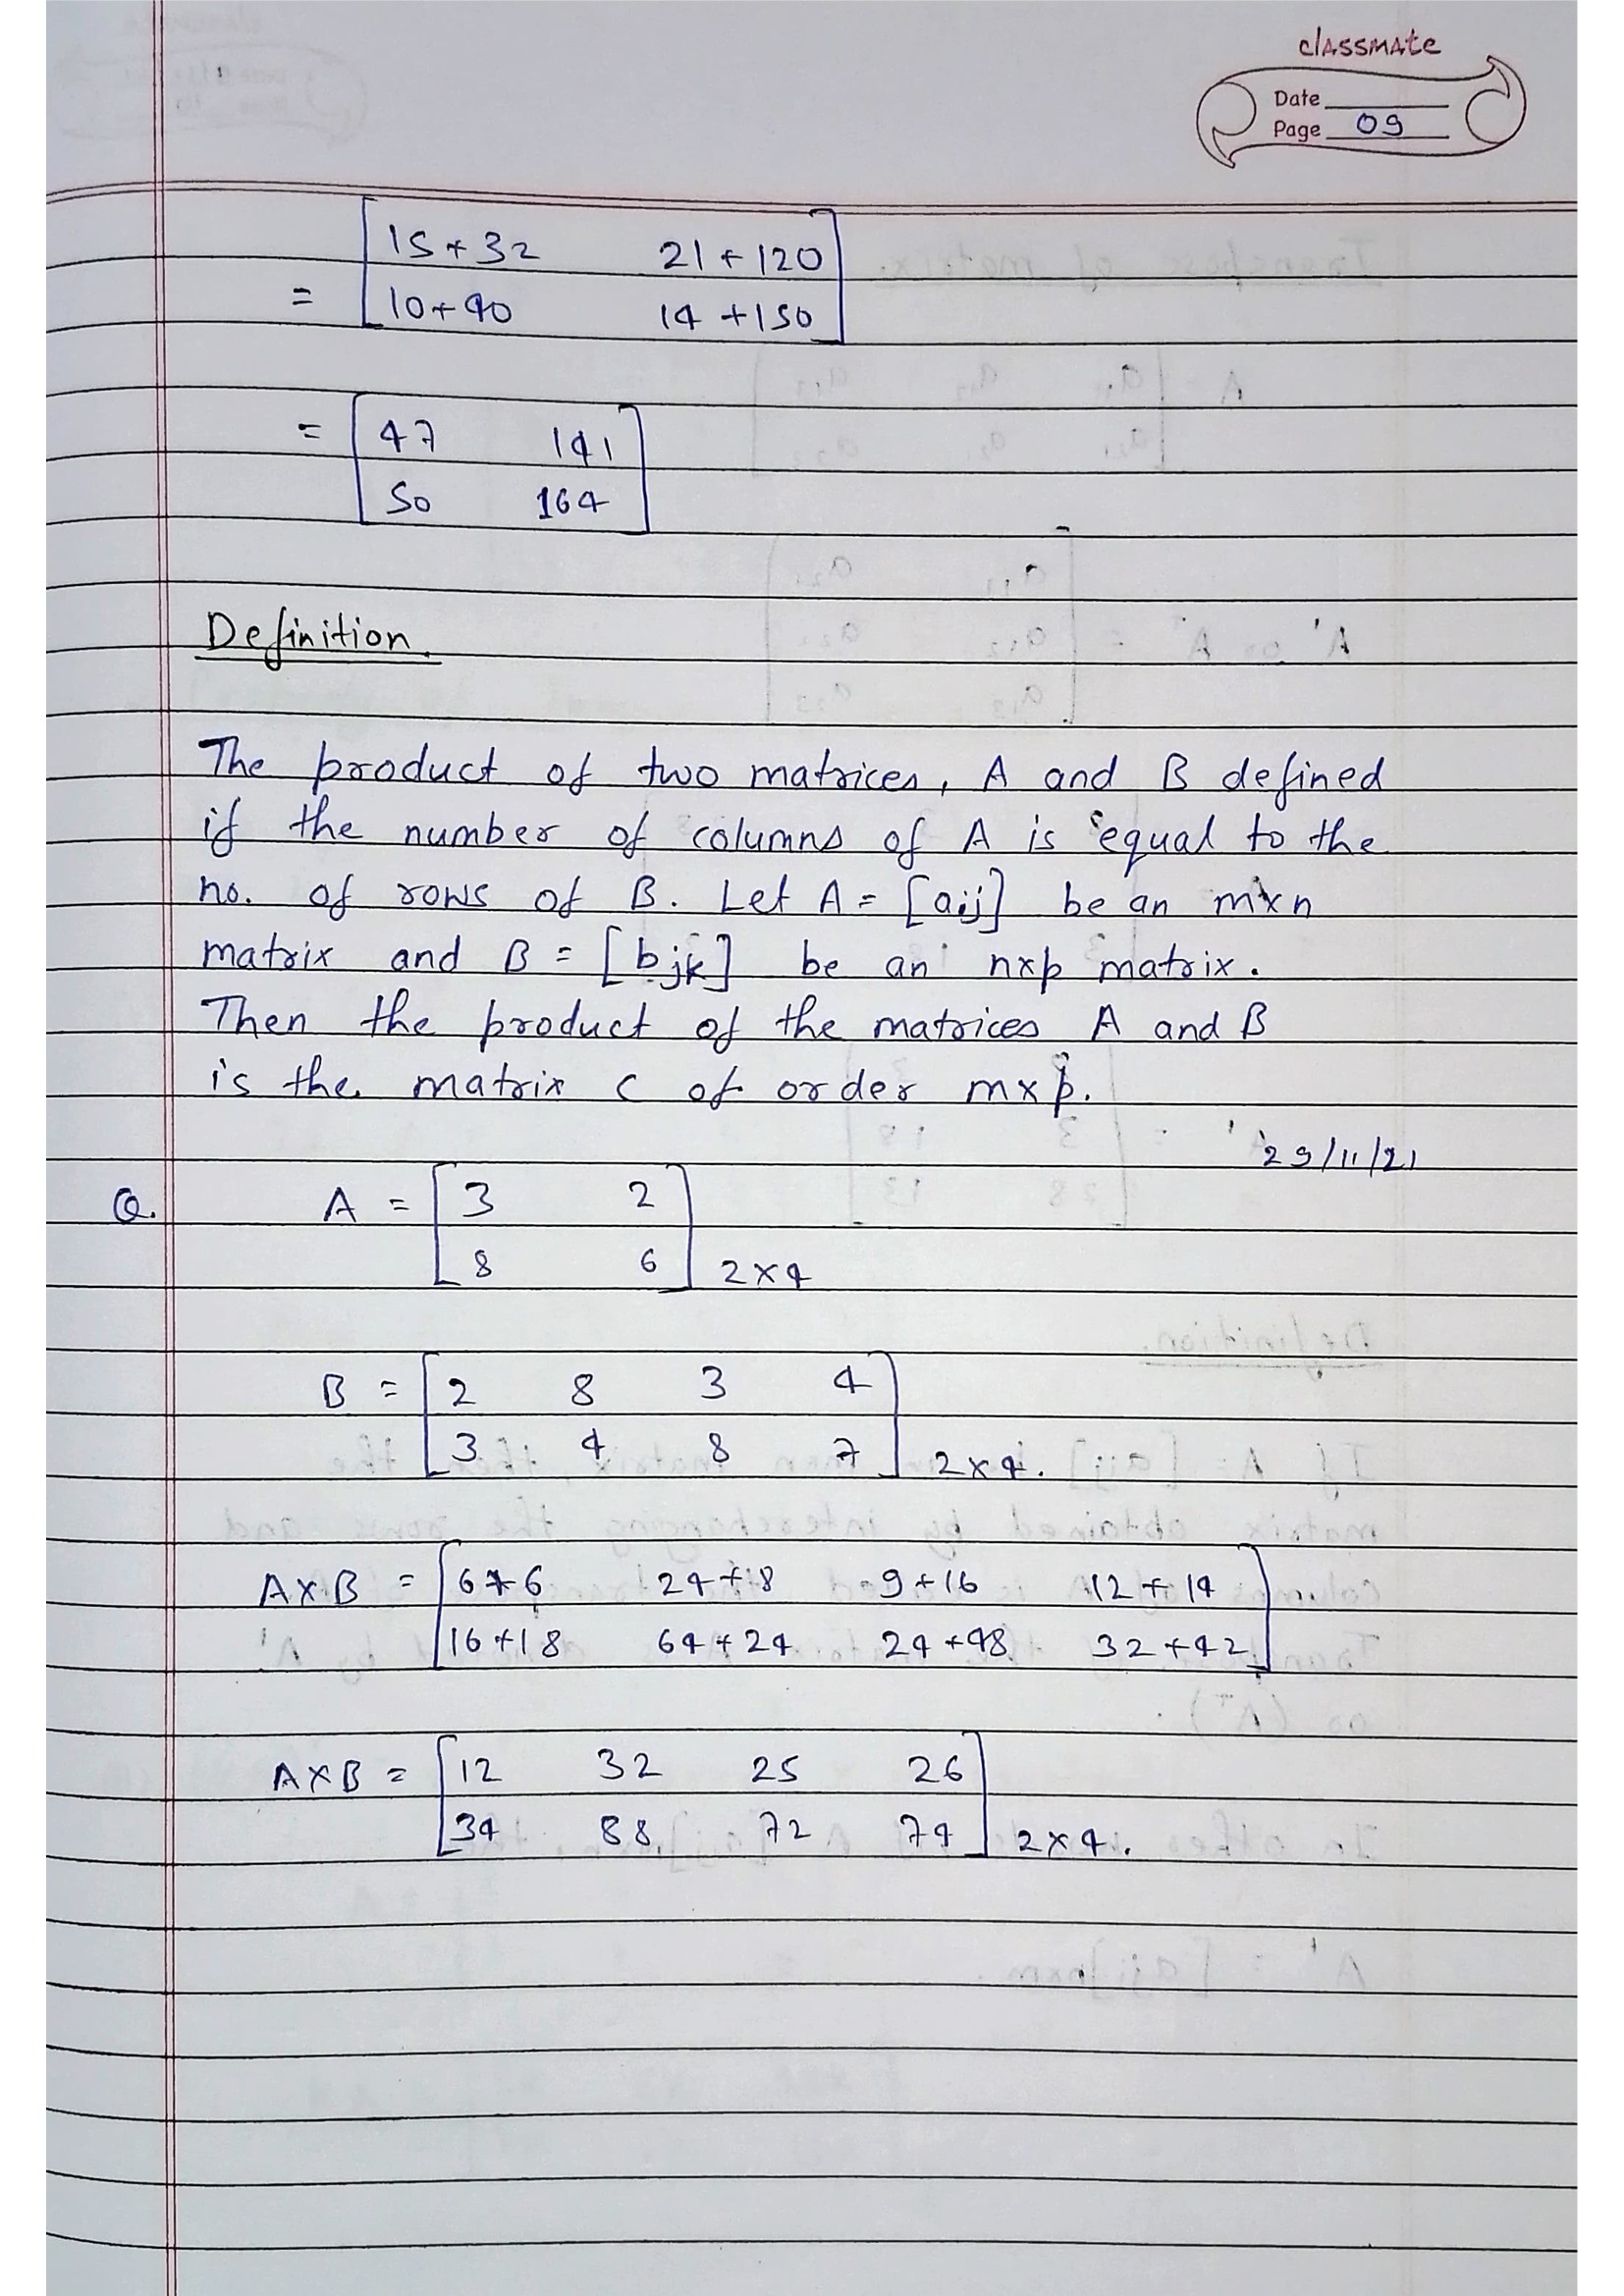 classmate
Date
Page 09
15+32 21+120
= 10+40 14+150
= 47 141
50 164
Definition.
The product of two matrices, A and B defined
if the number of columns of A is equal to the
no. of rows of B. Let A = [aij] be an m×n
matrix and B = [bjk] be an n×p matrix.
Then the product of the matrices A and B
is the matrix C of order m×p.
29/11/21
Q. A = 3 2
8 6 2×4
B = 2 8 3 4
3 4 8 7 2×4.
A×B = 6+6 24+8 9+16 12+14
16+18 64+24 24+48 32+42
A×B = 12 32 25 26
34 88 72 74 2×4.